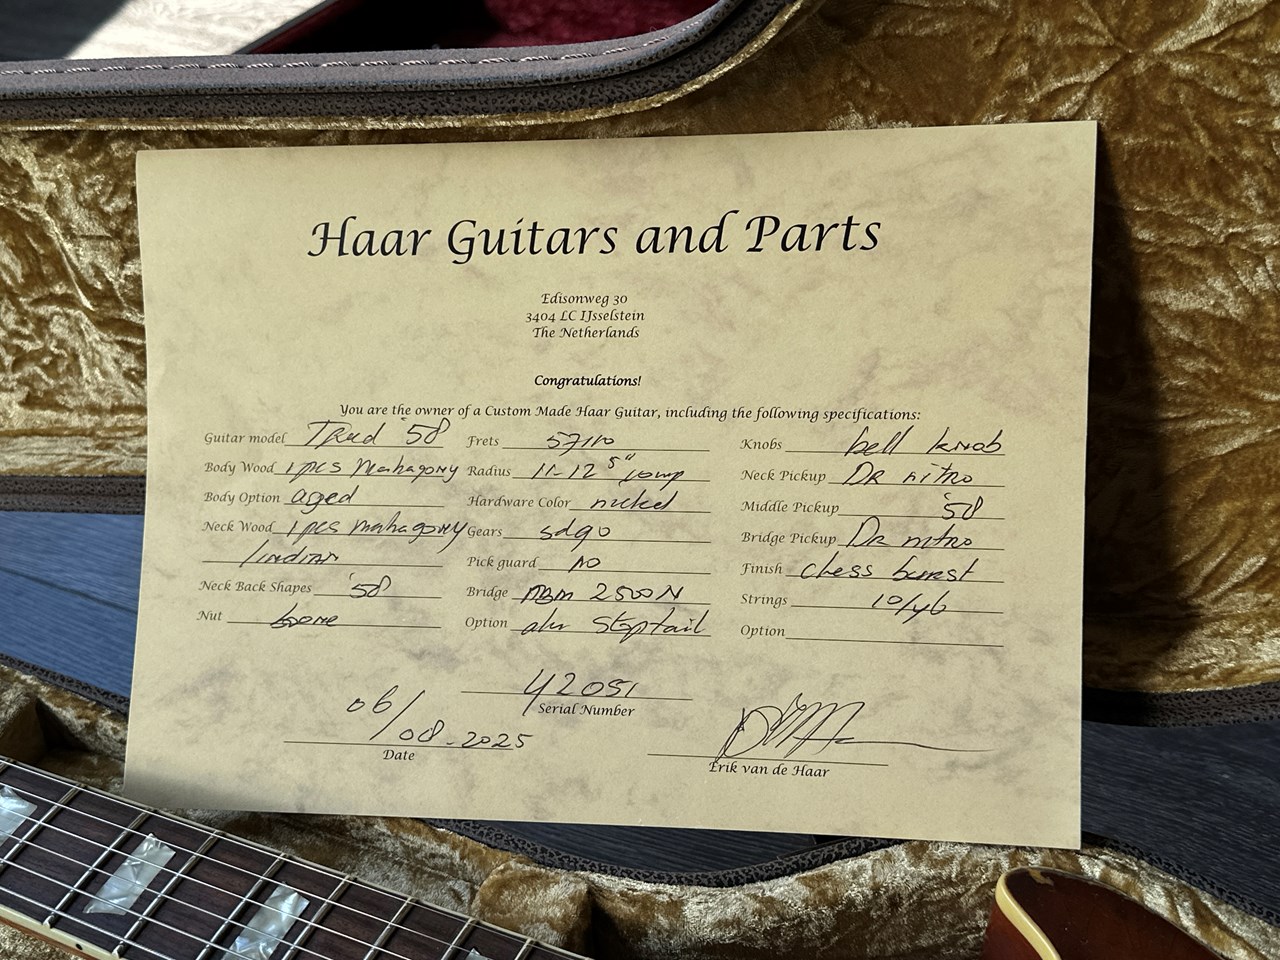 Haar Guitars and Parts
Edisonweg 30
3404 LC IJsselstein
The Netherlands
Congratulations!
You are the owner of a Custom Made Haar Guitar, including the following specifications:
Guitar model Trad '58
Body Wood 1pcs mahagony
Body Option aged
Neck Wood 1pcs mahagony
/indian
Neck Back Shapes '58
Nut bone
Frets 57110
Radius 11-12 5" comp
Hardware Color nickel
Gears sd90
Pick guard no
Bridge ABM 2500N
Option alu Stoptail
Knobs bell knob
Neck Pickup DR nitro
Middle Pickup '58
Bridge Pickup DR nitro
Finish chess burst
Strings 10/46
Option
42051
Serial Number
06/08-2025
Date
Erik van de Haar